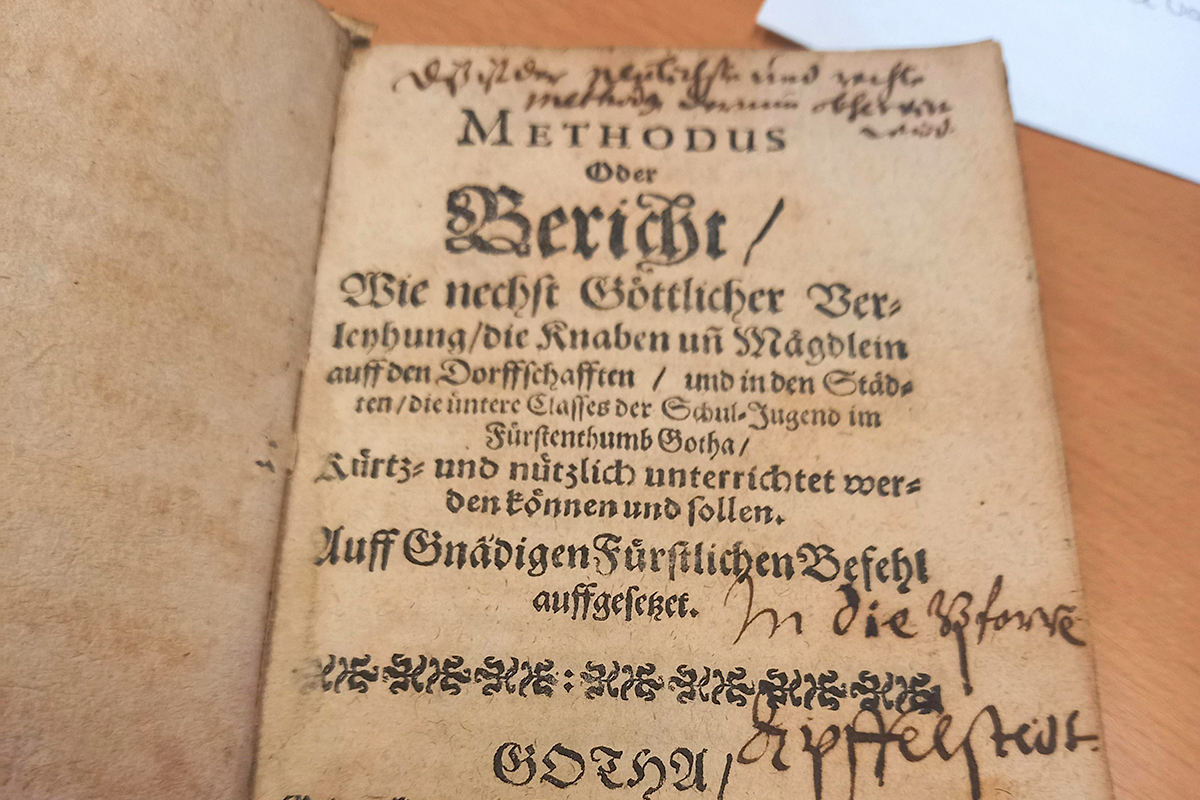 Diß ist der und rechte
methodg darinn
wird
METHODUS
Oder
Bericht /
Wie nechst Göttlicher Ver-
leyhung / die Knaben uñ Mägdlein
auff den Dorffschafften / und in den Städ-
ten / die untere Classes der Schul-Jugend im
Fürstenthumb Gotha /
Kürtz- und nützlich unterrichtet wer-
den können und sollen.
Auff Gnädigen Fürstlichen Befehl
auffgesetzet.
In die Pfarre
Apffelstedt
GOTHA /